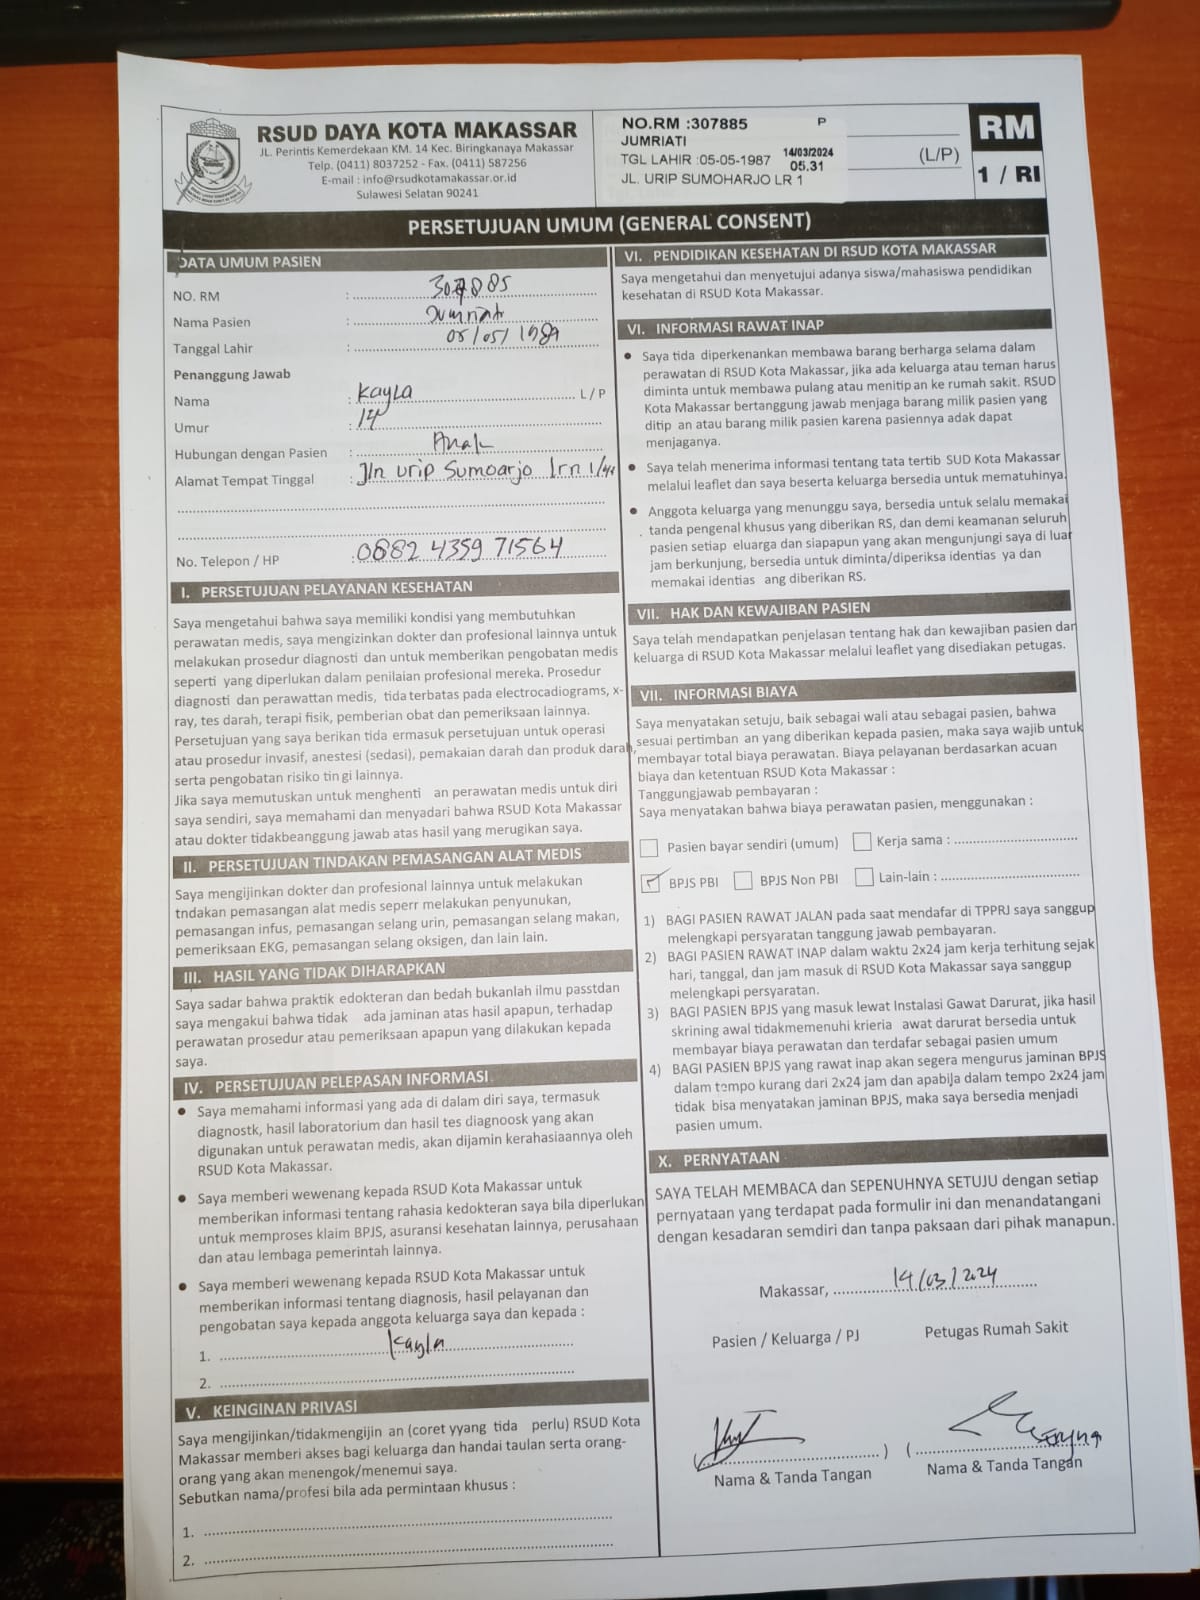 RSUD DAYA KOTA MAKASSAR
JL. Perintis Kemerdekaan KM. 14 Kec. Biringkanaya Makassar
Telp. (0411) 8037252 - Fax. (0411) 587256
E-mail : info@rsudkotamakassar.or.id
Sulawesi Selatan 90241
NO.RM :307885 P
JUMRIATI
TGL LAHIR :05-05-1987 14/03/2024 05.31
JL. URIP SUMOHARJO LR 1
(L/P)
RM
1 / RI
PERSETUJUAN UMUM (GENERAL CONSENT)
DATA UMUM PASIEN
NO. RM : 307885
Nama Pasien : Jumriati
Tanggal Lahir : 05/05/1987
Penanggung Jawab
Nama : Kayla L / P
Umur : 14
Hubungan dengan Pasien : Anak
Alamat Tempat Tinggal : Jln Urip Sumoarjo Lrn 1
No. Telepon / HP : 0882 4359 71564
I. PERSETUJUAN PELAYANAN KESEHATAN
Saya mengetahui bahwa saya memiliki kondisi yang membutuhkan
perawatan medis, saya mengizinkan dokter dan profesional lainnya untuk
melakukan prosedur diagnosti dan untuk memberikan pengobatan medis
seperti yang diperlukan dalam penilaian profesional mereka. Prosedur
diagnosti dan perawattan medis, tidaterbatas pada electrocadiograms, x-
ray, tes darah, terapi fisik, pemberian obat dan pemeriksaan lainnya.
Persetujuan yang saya berikan tida ermasuk persetujuan untuk operasi
atau prosedur invasif, anestesi (sedasi), pemakaian darah dan produk darah,
serta pengobatan risiko tin gi lainnya.
Jika saya memutuskan untuk menghenti an perawatan medis untuk diri
saya sendiri, saya memahami dan menyadari bahwa RSUD Kota Makassar
atau dokter tidakbeanggung jawab atas hasil yang merugikan saya.
II. PERSETUJUAN TINDAKAN PEMASANGAN ALAT MEDIS
Saya mengijinkan dokter dan profesional lainnya untuk melakukan
tndakan pemasangan alat medis seperr melakukan penyunukan,
pemasangan infus, pemasangan selang urin, pemasangan selang makan,
pemeriksaan EKG, pemasangan selang oksigen, dan lain lain.
III. HASIL YANG TIDAK DIHARAPKAN
Saya sadar bahwa praktik edokteran dan bedah bukanlah ilmu passtdan
saya mengakui bahwa tidak ada jaminan atas hasil apapun, terhadap
perawatan prosedur atau pemeriksaan apapun yang dilakukan kepada
saya.
IV. PERSETUJUAN PELEPASAN INFORMASI
● Saya memahami informasi yang ada di dalam diri saya, termasuk
diagnostk, hasil laboratorium dan hasil tes diagnoosk yang akan
digunakan untuk perawatan medis, akan dijamin kerahasiaannya oleh
RSUD Kota Makassar.
● Saya memberi wewenang kepada RSUD Kota Makassar untuk
memberikan informasi tentang rahasia kedokteran saya bila diperlukan
untuk memproses klaim BPJS, asuransi kesehatan lainnya, perusahaan
dan atau lembaga pemerintah lainnya.
● Saya memberi wewenang kepada RSUD Kota Makassar untuk
memberikan informasi tentang diagnosis, hasil pelayanan dan
pengobatan saya kepada anggota keluarga saya dan kepada :
1. Kayla
2.
V. KEINGINAN PRIVASI
Saya mengijinkan/tidakmengijin an (coret yyang tida perlu) RSUD Kota
Makassar memberi akses bagi keluarga dan handai taulan serta orang-
orang yang akan menengok/menemui saya.
Sebutkan nama/profesi bila ada permintaan khusus :
1.
2.
VI. PENDIDIKAN KESEHATAN DI RSUD KOTA MAKASSAR
Saya mengetahui dan menyetujui adanya siswa/mahasiswa pendidikan
kesehatan di RSUD Kota Makassar.
VI. INFORMASI RAWAT INAP
● Saya tida diperkenankan membawa barang berharga selama dalam
perawatan di RSUD Kota Makassar, jika ada keluarga atau teman harus
diminta untuk membawa pulang atau menitip an ke rumah sakit. RSUD
Kota Makassar bertanggung jawab menjaga barang milik pasien yang
ditip an atau barang milik pasien karena pasiennya adak dapat
menjaganya.
● Saya telah menerima informasi tentang tata tertib SUD Kota Makassar
melalui leaflet dan saya beserta keluarga bersedia untuk mematuhinya.
● Anggota keluarga yang menunggu saya, bersedia untuk selalu memakai
tanda pengenal khusus yang diberikan RS, dan demi keamanan seluruh
pasien setiap eluarga dan siapapun yang akan mengunjungi saya di luar
jam berkunjung, bersedia untuk diminta/diperiksa identias ya dan
memakai identias ang diberikan RS.
VII. HAK DAN KEWAJIBAN PASIEN
Saya telah mendapatkan penjelasan tentang hak dan kewajiban pasien dan
keluarga di RSUD Kota Makassar melalui leaflet yang disediakan petugas.
VII. INFORMASI BIAYA
Saya menyatakan setuju, baik sebagai wali atau sebagai pasien, bahwa
sesuai pertimban an yang diberikan kepada pasien, maka saya wajib untuk
membayar total biaya perawatan. Biaya pelayanan berdasarkan acuan
biaya dan ketentuan RSUD Kota Makassar :
Tanggungjawab pembayaran :
Saya menyatakan bahwa biaya perawatan pasien, menggunakan :
Pasien bayar sendiri (umum) Kerja sama :
BPJS PBI BPJS Non PBI Lain-lain :
1) BAGI PASIEN RAWAT JALAN pada saat mendafar di TPPRJ saya sanggup
melengkapi persyaratan tanggung jawab pembayaran.
2) BAGI PASIEN RAWAT INAP dalam waktu 2x24 jam kerja terhitung sejak
hari, tanggal, dan jam masuk di RSUD Kota Makassar saya sanggup
melengkapi persyaratan.
3) BAGI PASIEN BPJS yang masuk lewat Instalasi Gawat Darurat, jika hasil
skrining awal tidakmemenuhi krieria awat darurat bersedia untuk
membayar biaya perawatan dan terdafar sebagai pasien umum
4) BAGI PASIEN BPJS yang rawat inap akan segera mengurus jaminan BPJS
dalam tempo kurang dari 2x24 jam dan apabila dalam tempo 2x24 jam
tidak bisa menyatakan jaminan BPJS, maka saya bersedia menjadi
pasien umum.
X. PERNYATAAN
SAYA TELAH MEMBACA dan SEPENUHNYA SETUJU dengan setiap
pernyataan yang terdapat pada formulir ini dan menandatangani
dengan kesadaran semdiri dan tanpa paksaan dari pihak manapun.
Makassar, 14/03/2024
Pasien / Keluarga / PJ Petugas Rumah Sakit
Nama & Tanda Tangan Nama & Tanda Tangan